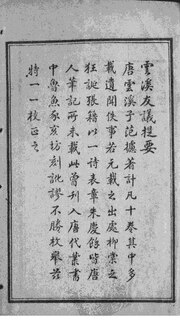 雲溪友議提要
唐雲溪子范攄著計凡十卷其中多
載遺聞佚事若元載之出處柳棠之
狂誕張籍以一詩表章朱慶餘皆唐
人筆記所未載此曾刊入唐代叢書
中魯魚豕亥坊刻訛謬不勝枚舉茲
特一一校正之